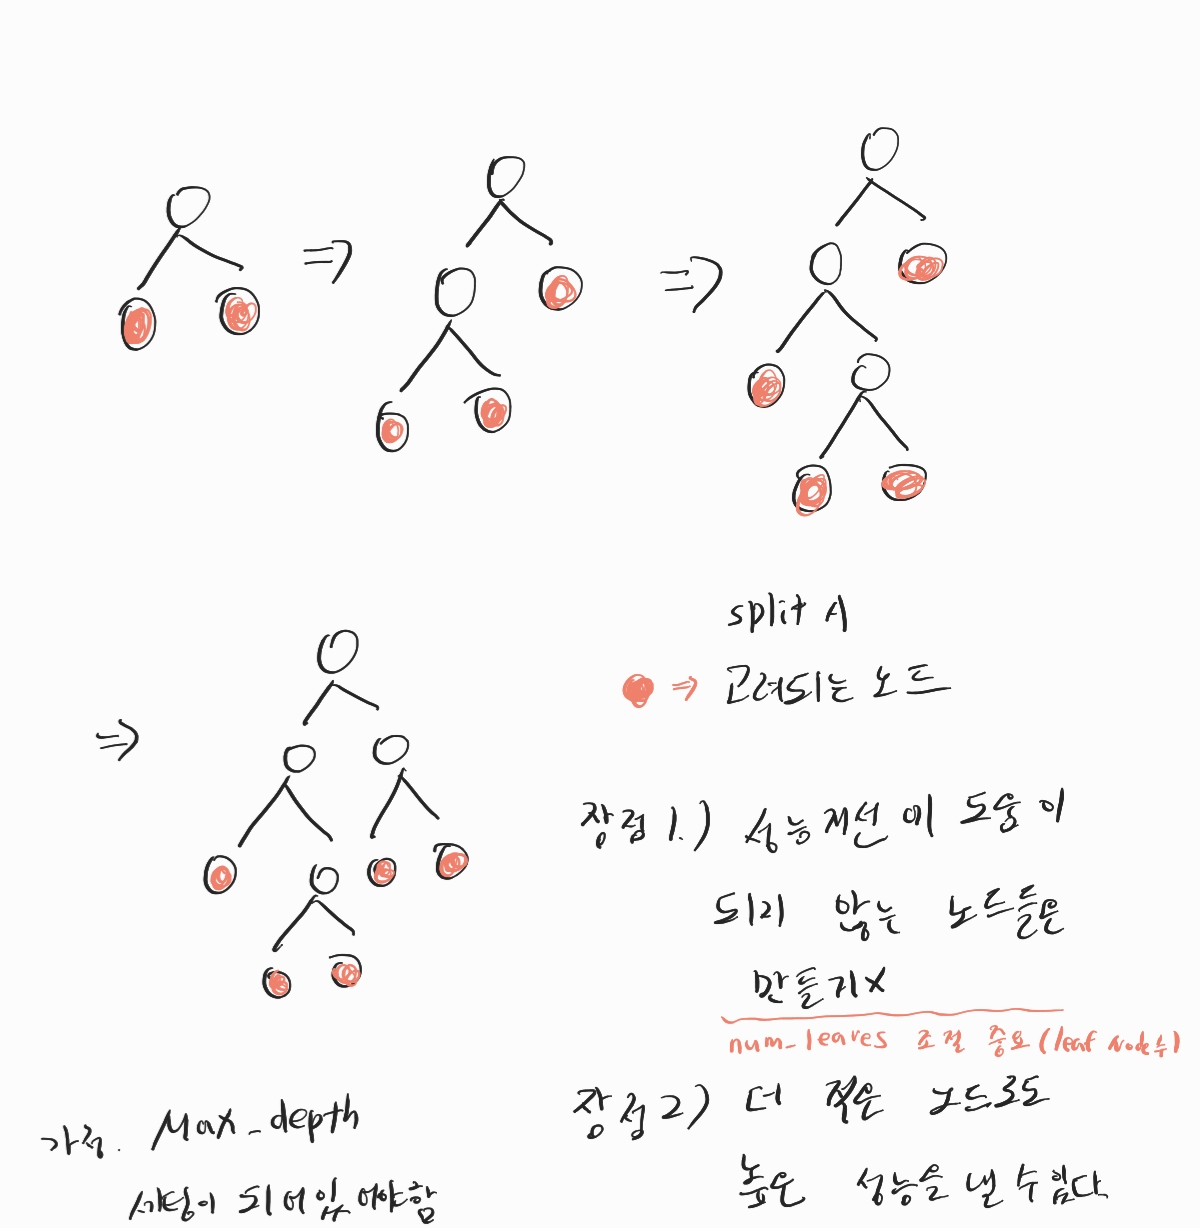 split 시
⇒ 고려되는 노드
장점 1.) 성능개선에 도움이
되지 않는 노드들은
만들지X
num_leaves 조절 중요(leaf node수)
장점2) 더 적은 노드로도
높은 성능을 낼 수 있다
가정. Max_depth
세팅이 되어있어야함